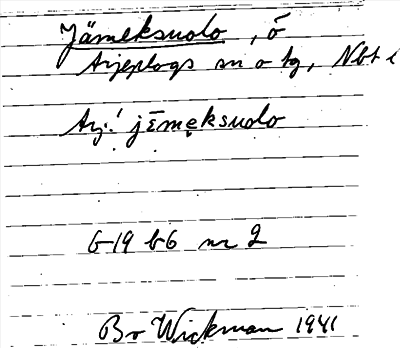 Jämeksuolo, ö
Arjeplogs sn o tg, Nbt l
Arj: jēmęksuolo
G-19 b6 nr 2
Bo Wickman 1941